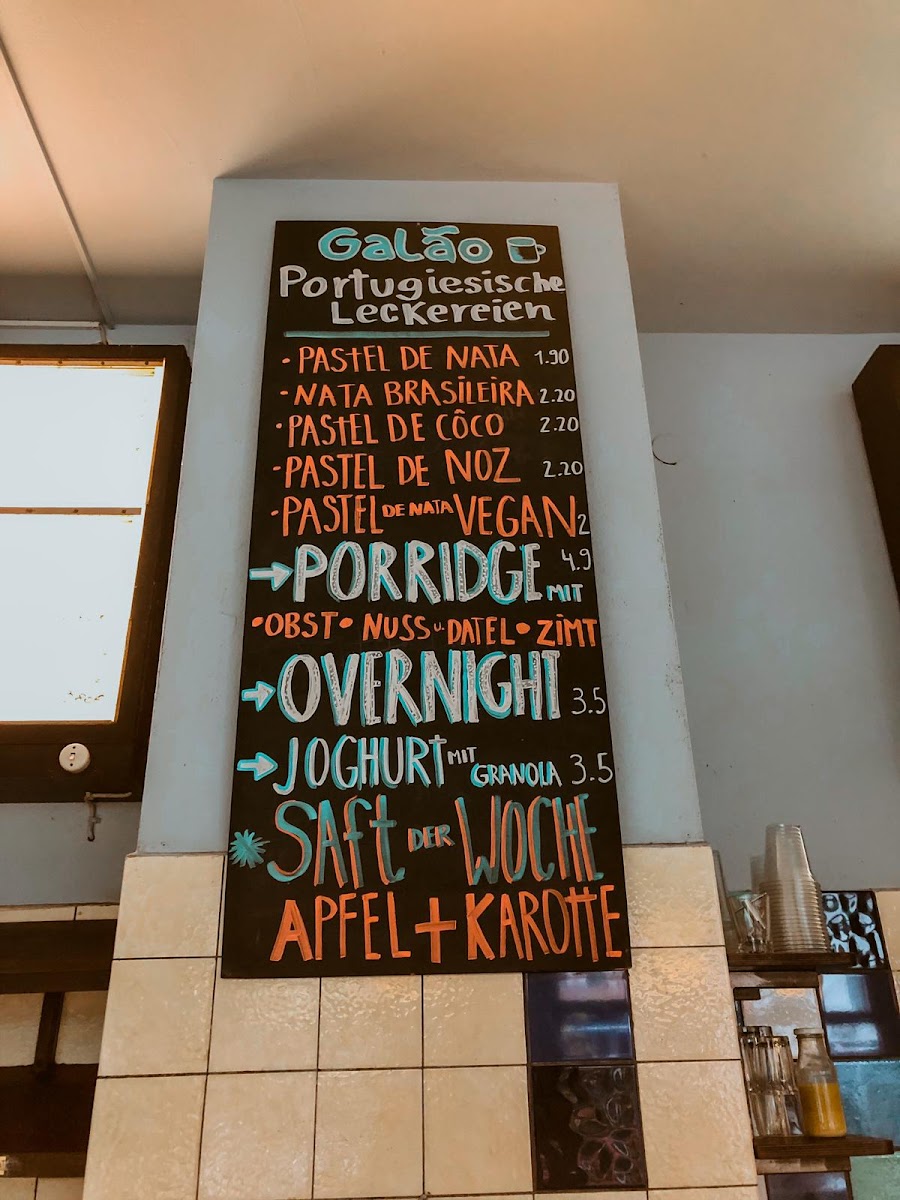 GaLão
Portugiesische
Leckereien
• PAStEL DE NATA 1.90
• NATA BRASiLEiRA 2.20
• PAStEL DE CÔCO 2.20
• PASTEL DE NOZ 2.20
• PASTEL DE NATA VEGAN 2
→ PORRIDGE MIT 4.9
• OBST • NUSS u. DATEL • ZiMT
→ OVERNIGHT 3.5
→ JOGHURT MIT GRANOLA 3.5
SAft DER WOCHE
APFEL + KAROttE